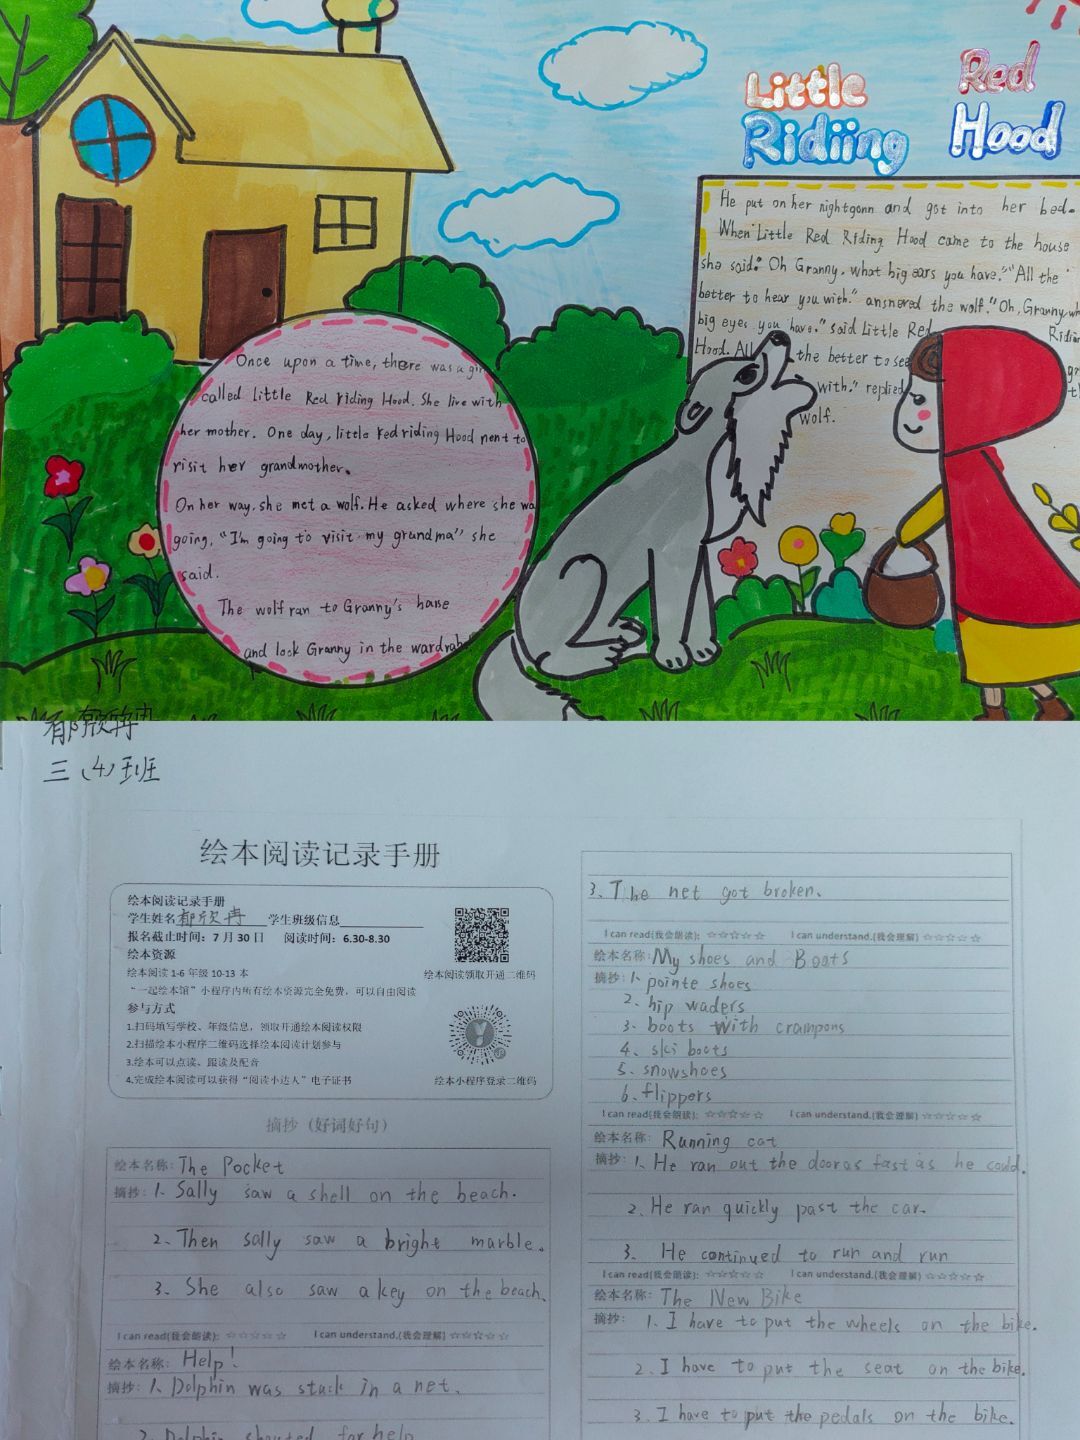 Little Red
Ridiing Hood
He put on her nightgonn and got into her bed.
When Little Red Riding Hood came to the house
she said: Oh Granny, what big ears you have." "All the
better to hear you with." ansnered the wolf. "Oh, Granny, wh
big eyes you have." said Little Red Ridin
Hood. All the better to see
with." replied
wolf.
Once upon a time, there was a gir
called Little Red riding Hood. She live with
her mother. One day, little red riding Hood nent to
visit her grandmother.
On her way, she met a wolf. He asked where she wa
going, "I'm going to visit my grandma" she
said.
The wolf ran to Granny's house
and lock Granny in the wardrab
三（4）班
绘本阅读记录手册
绘本阅读记录手册
学生姓名 郁欣冉 学生班级信息
报名截止时间：7 月 30 日 阅读时间：6.30-8.30
绘本资源
绘本阅读 1-6 年级 10-13 本
绘本阅读领取开通二维码
“一起绘本馆”小程序内所有绘本资源完全免费，可以自由阅读
参与方式
1.扫码填写学校、年级信息，领取开通绘本阅读权限
2.扫描绘本小程序二维码选择绘本阅读计划参与
3.绘本可以点读、跟读及配音
4.完成绘本阅读可以获得“阅读小达人”电子证书
绘本小程序登录二维码
摘抄（好词好句）
绘本名称: The Pocket
摘抄: 1. Sally saw a shell on the beach.
2. Then sally saw a bright marble.
3. She also saw a key on the beach.
I can read(我会朗读): ☆☆☆☆☆ I can understand.(我会理解) ☆☆☆☆☆
绘本名称: Help!
摘抄: 1. Dolphin was stuck in a net.
2. Dolphin shouted for help
3. The net got broken.
I can read(我会朗读): ☆☆☆☆☆ I can understand.(我会理解) ☆☆☆☆☆
绘本名称: My shoes and Boots
摘抄: 1. pointe shoes
2. hip waders
3. boots with crampons
4. ski boots
5. snowshoes
6. flippers
I can read(我会朗读): ☆☆☆☆☆ I can understand.(我会理解) ☆☆☆☆☆
绘本名称: Running cat
摘抄: 1. He ran out the door as fast as he could.
2. He ran quickly past the car.
3. He continued to run and run
I can read(我会朗读): ☆☆☆☆☆ I can understand.(我会理解) ☆☆☆☆☆
绘本名称: The New Bike
摘抄: 1. I have to put the wheels on the bike.
2. I have to put the seat on the bike.
3. I have to put the pedals on the bike.